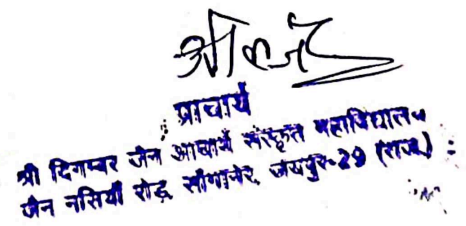 प्राचार्य
श्री दिगम्बर जैन आचार्य संस्कृत महाविद्यालय
जैन नसियाँ रोड़ सांगानेर, जयपुर-29 (राज.)